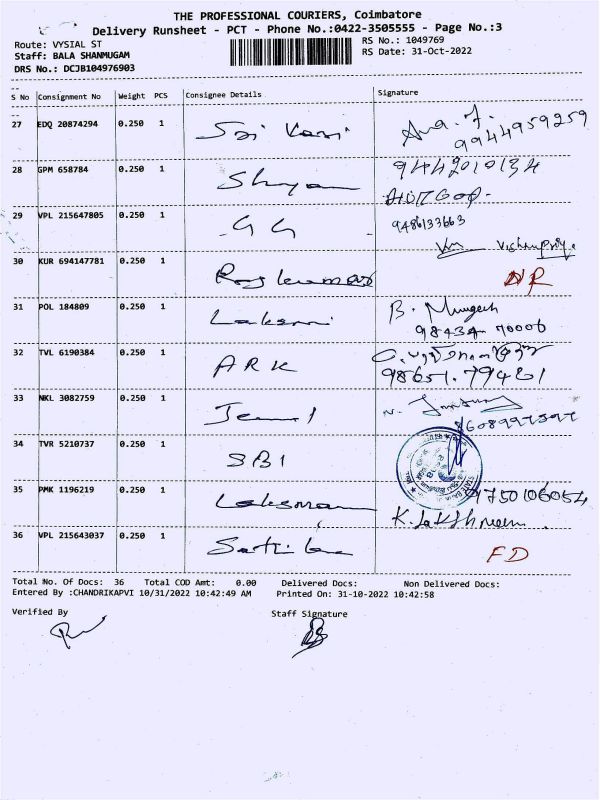 THE PROFESSIONAL COURIERS, Coimbatore
Delivery Runsheet - PCT - Phone No.:0422-3505555 - Page No.:3
Route: VYSIAL ST
RS No.: 1049769
Staff: BALA SHANMUGAM
RS Date: 31-Oct-2022
DRS No.: DCJB104976903
S No Consignment No Weight PCS Consignee Details Signature
27 EDQ 20874294 0.250 1 Sri Kavi
9944959259
28 GPM 658784 0.250 1 Shyam 9442010134
29 VPL 215647805 0.250 1 G G 9486133663
Vishnupriya
30 KUR 694147781 0.250 1 Rajkumar NR
31 POL 184809 0.250 1 Laksmi B. Murugesh
98434 70006
32 TVL 6190384 0.250 1 ARK
98651.79481
33 NKL 3082759 0.250 1
34 TVR 5210737 0.250 1 SBI
35 PMK 1196219 0.250 1 Laksman 9750106054
K. Lakshmanan
36 VPL 215643037 0.250 1 FD
Total No. Of Docs: 36 Total COD Amt: 0.00 Delivered Docs: Non Delivered Docs:
Entered By :CHANDRIKAPVI 10/31/2022 10:42:49 AM Printed On: 31-10-2022 10:42:58
Verified By Staff Signature